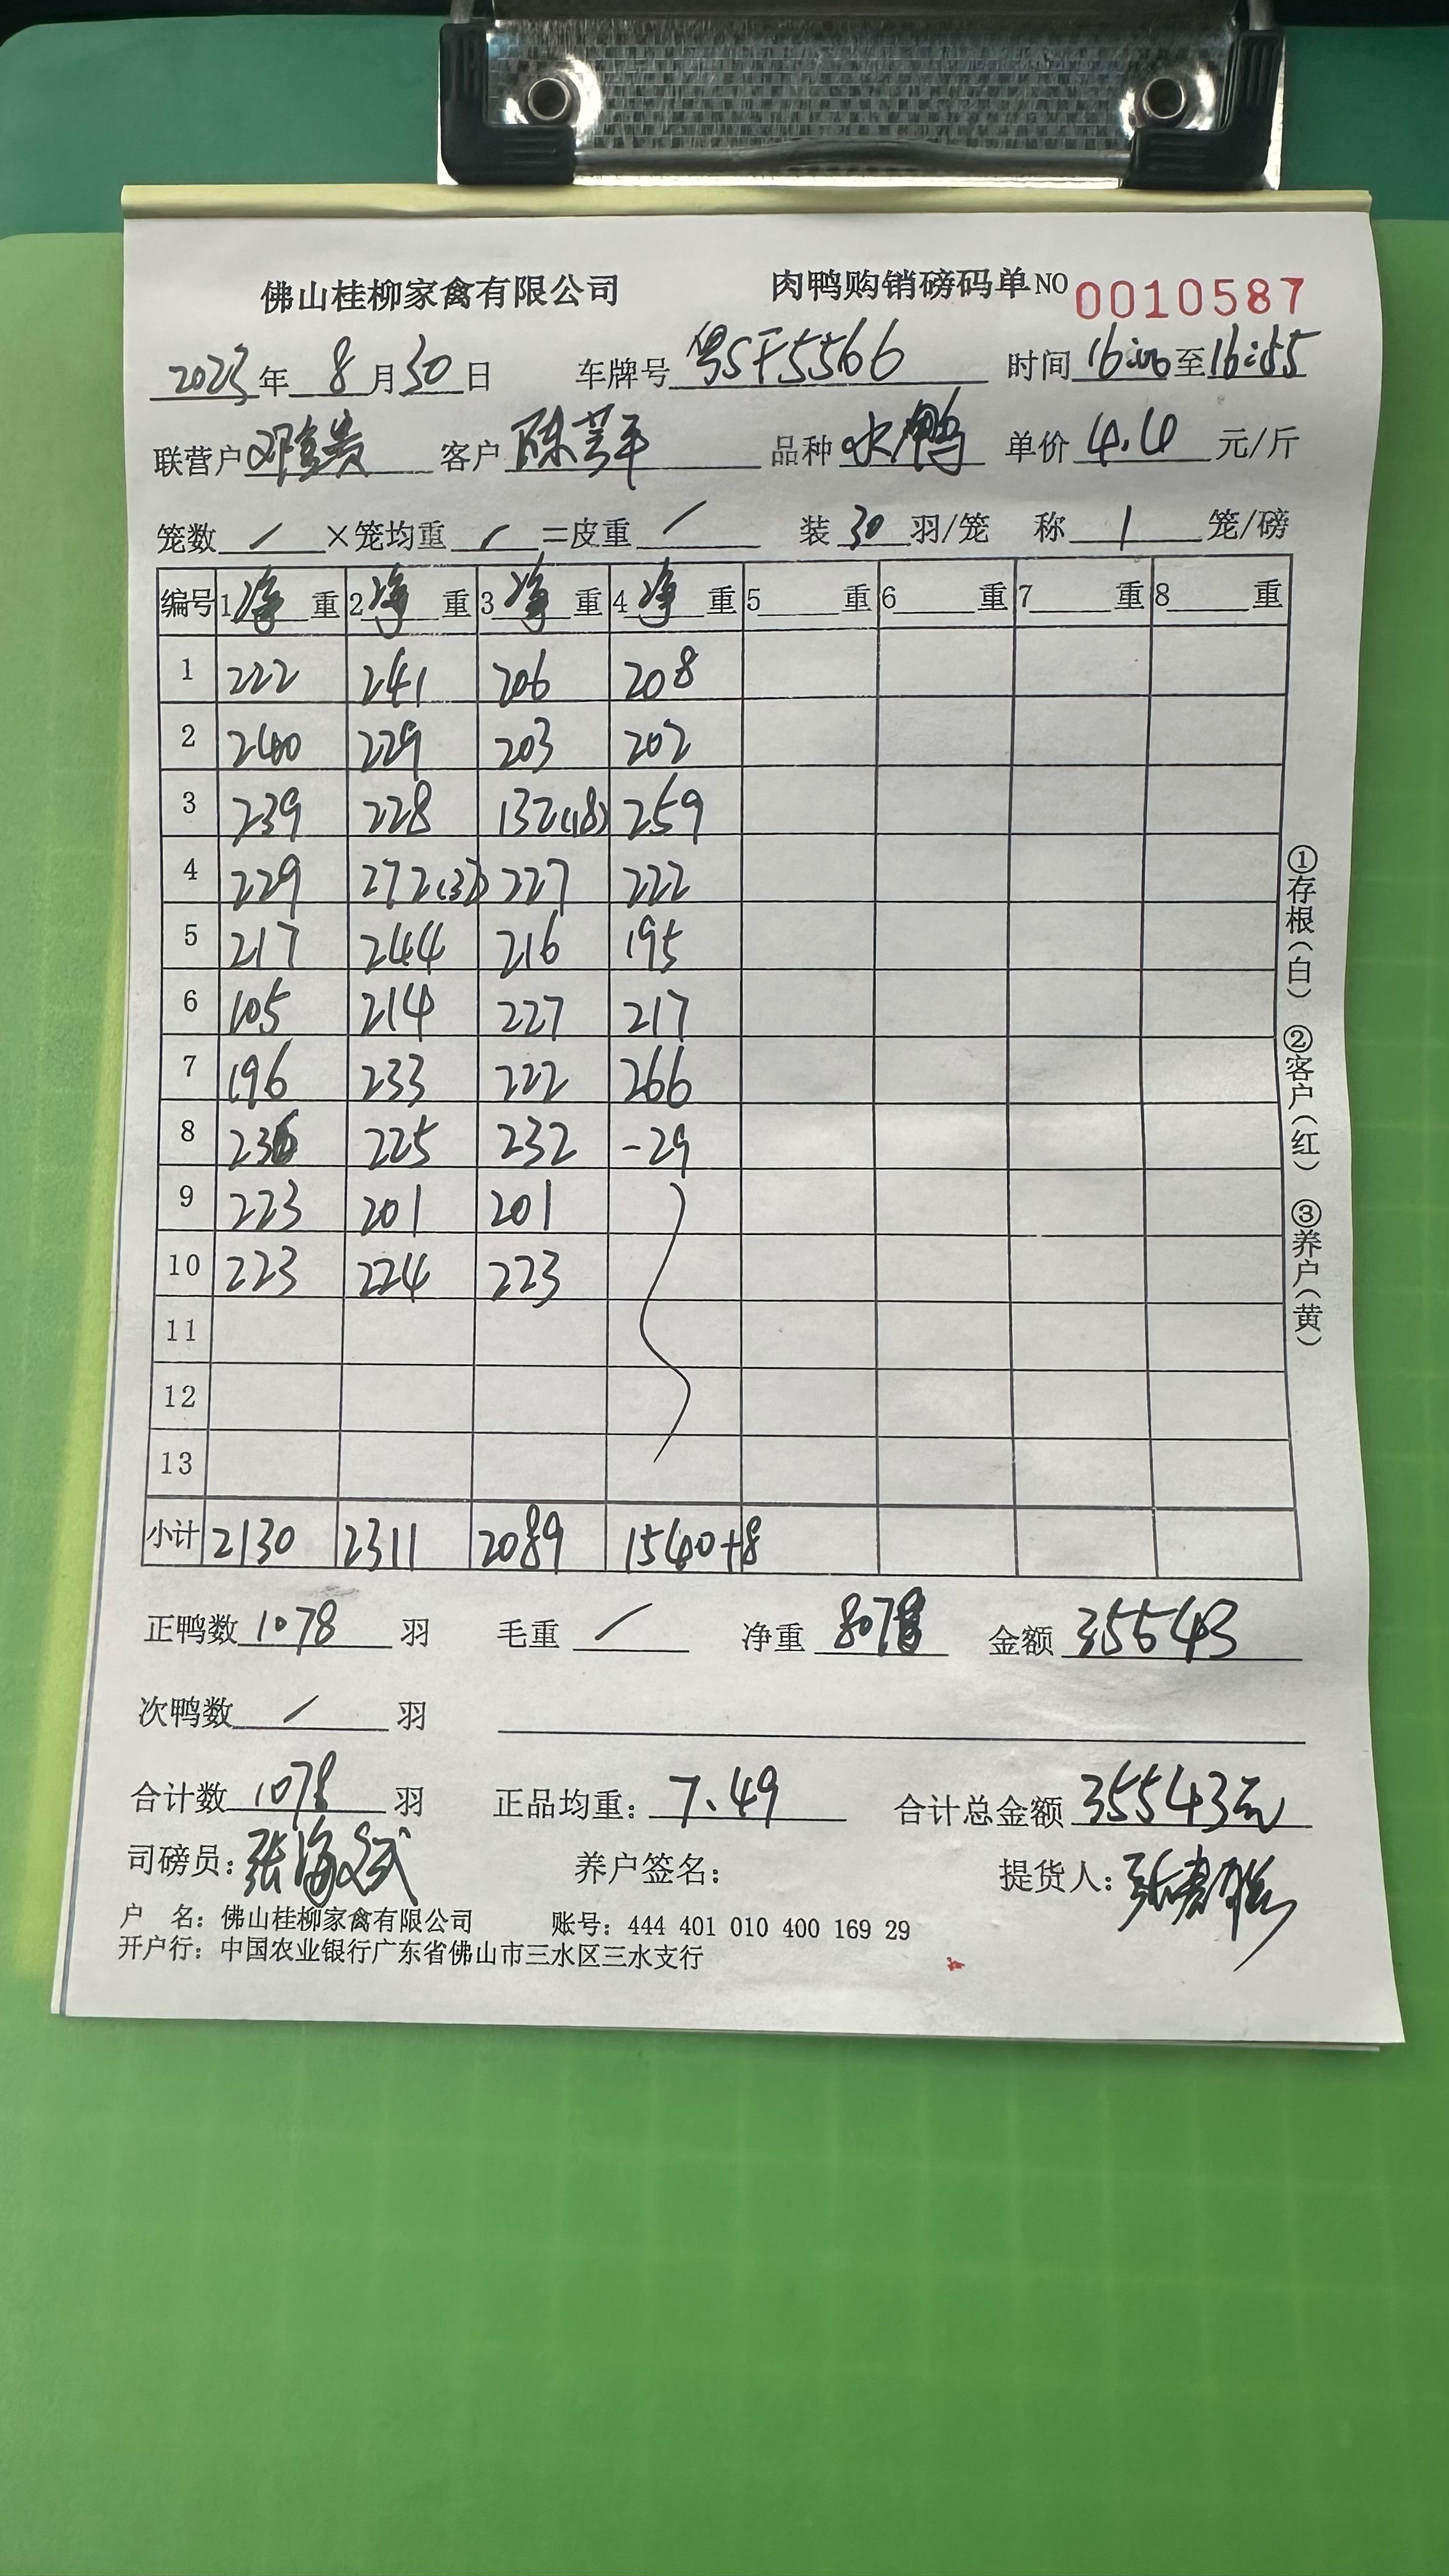 佛山桂柳家禽有限公司 肉鸭购销磅码单 NO 0010587
2023年 8月30日 车牌号 粤SF5566 时间 16:00至16:55
联营户 客户 陈芸平 品种 水鸭 单价 4.4 元/斤
笼数 / ×笼均重 / =皮重 / 装 30 羽/笼 称 1 笼/磅
编号 1净重 2净重 3净重 4净重 5 重 6 重 7 重 8 重
1 222 241 206 208
2 240 229 203 202
3 239 228 132(18) 259
4 229 272(37) 227 222
5 217 244 216 195
6 105 214 227 217
7 196 233 222 266
8 236 225 232 -29
9 223 201 201
10 223 224 223
11
12
13
小计 2130 2311 2089 1540+8
正鸭数 1078 羽 毛重 / 净重 8078 金额 35543
次鸭数 / 羽
合计数 1078 羽 正品均重: 7.49 合计总金额 35543元
司磅员: 养户签名: 提货人:
户 名: 佛山桂柳家禽有限公司 账号: 444 401 010 400 169 29
开户行: 中国农业银行广东省佛山市三水区三水支行
①存根(白) ②客户(红) ③养户(黄)